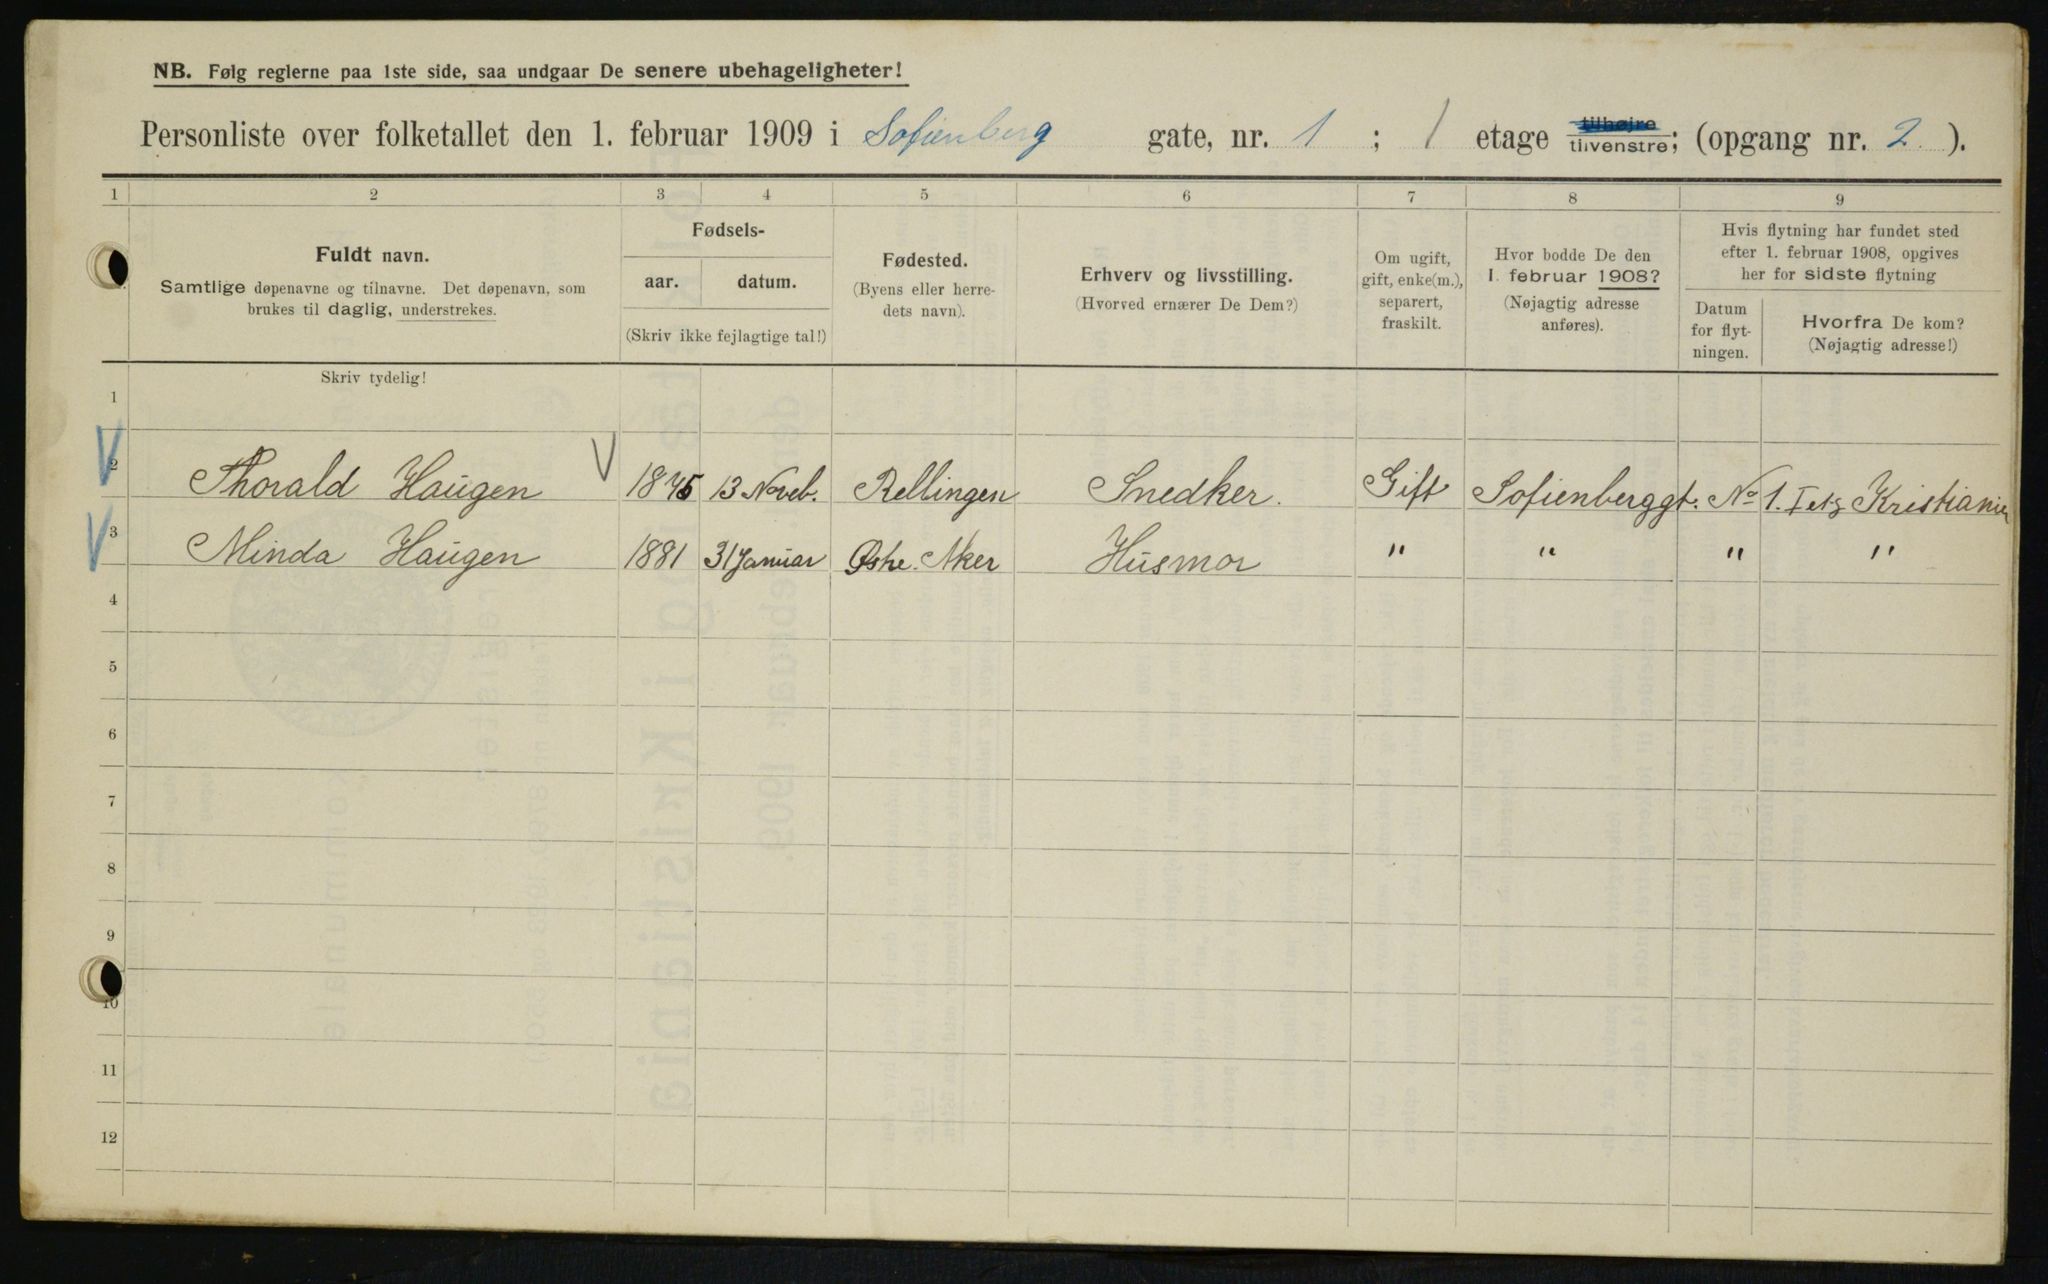 NB. Følg reglerne paa 1ste side, saa undgaar De senere ubehageligheter!
Personliste over folketallet den 1. februar 1909 i Sofienberg gate, nr. 1 ; 1 etage tilhøjre tilvenstre; (opgang nr. 2 ).
1 2 3 4 5 6 7 8 9
Fuldt navn.
Samtlige døpenavne og tilnavne. Det døpenavn, som
brukes til daglig, understrekes.
Fødsels-
aar. datum.
(Skriv ikke fejlagtige tal!)
Fødested.
(Byens eller herre-
dets navn).
Erhverv og livsstilling.
(Hvorved ernærer De Dem?)
Om ugift,
gift, enke(m.),
separert,
fraskilt.
Hvor bodde De den
1. februar 1908?
(Nøjagtig adresse
anføres).
Hvis flytning har fundet sted
efter 1. februar 1908, opgives
her for sidste flytning
Datum
for flyt-
ningen.
Hvorfra De kom?
(Nøjagtig adresse!)
Skriv tydelig!
1
2 Thorald Haugen 13 Noveb. Rellingen Snedker. Gift Sofienberggt. No 1. I etg Kristiania
3 Minda Haugen 1881 31 Januar Østre Aker Husmor " " " "
4
5
6
7
8
9
10
11
12